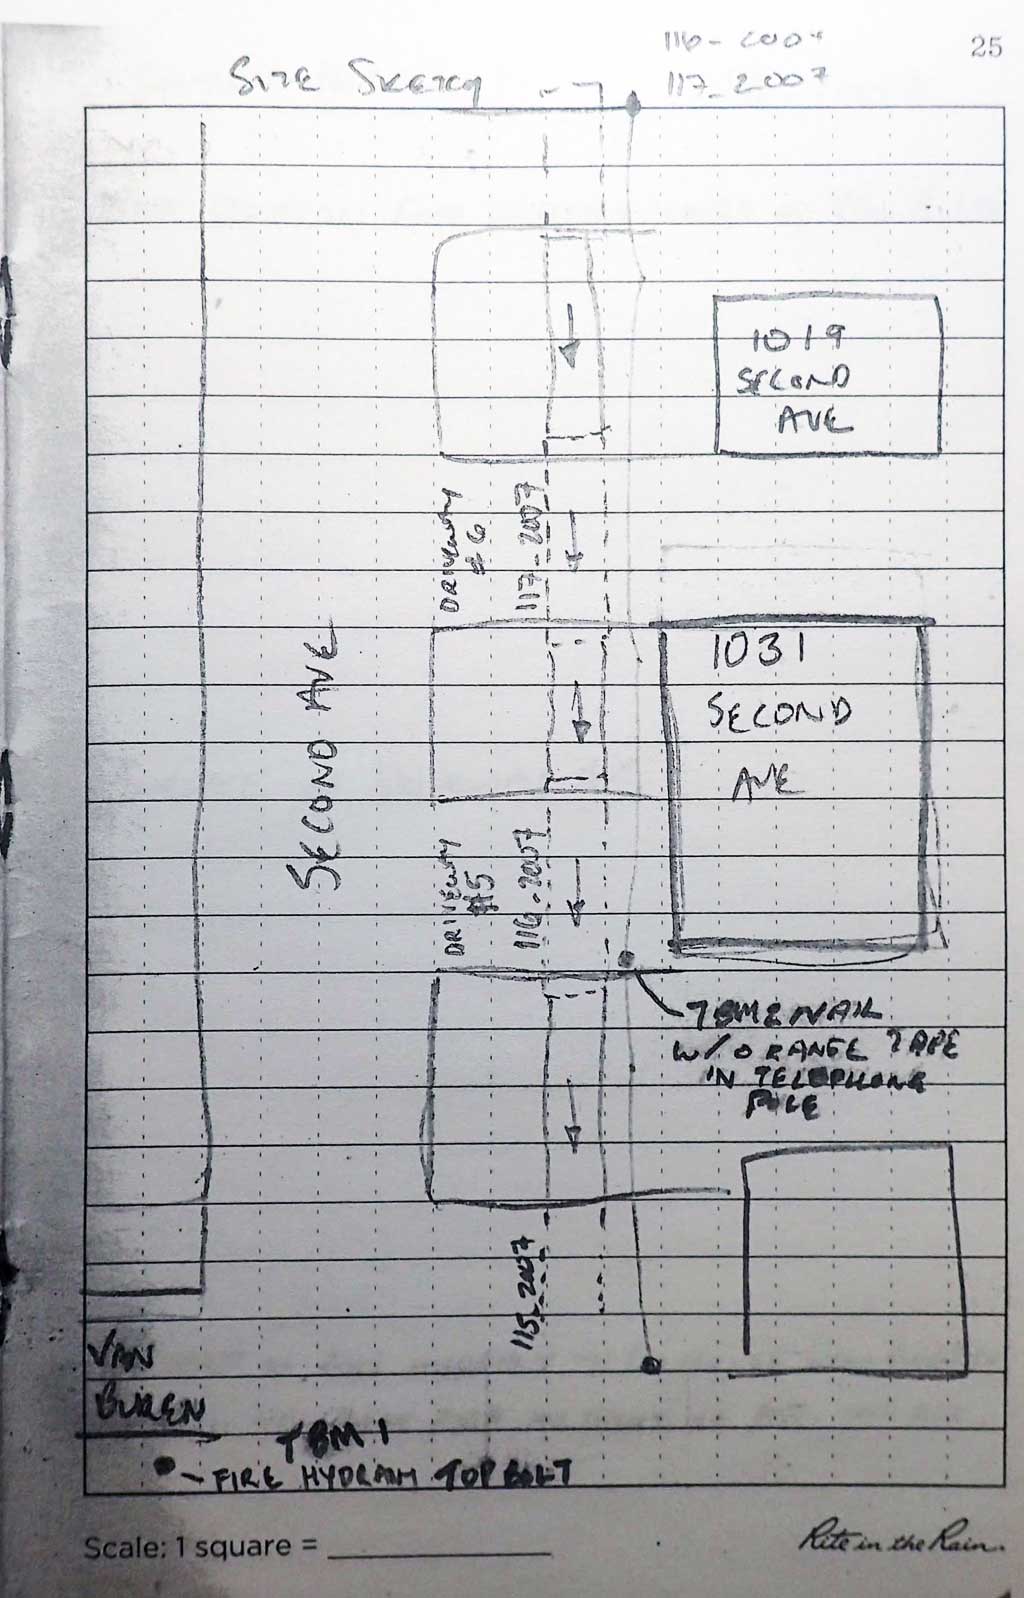 116-2007
25
SITE SKETCH
117-2007
1019
SECOND
AVE
DRIVEWAY
#6
117-2007
1031
SECOND
AVE
SECOND AVE
DRIVEWAY
#5
116-2007
TBM 2 NAIL
W/ ORANGE TAPE
IN TELEPHONE
POLE
115-2007
VAN
BUREN
TBM 1
- FIRE HYDRANT TOP BOLT
Scale: 1 square =
Rite in the Rain.